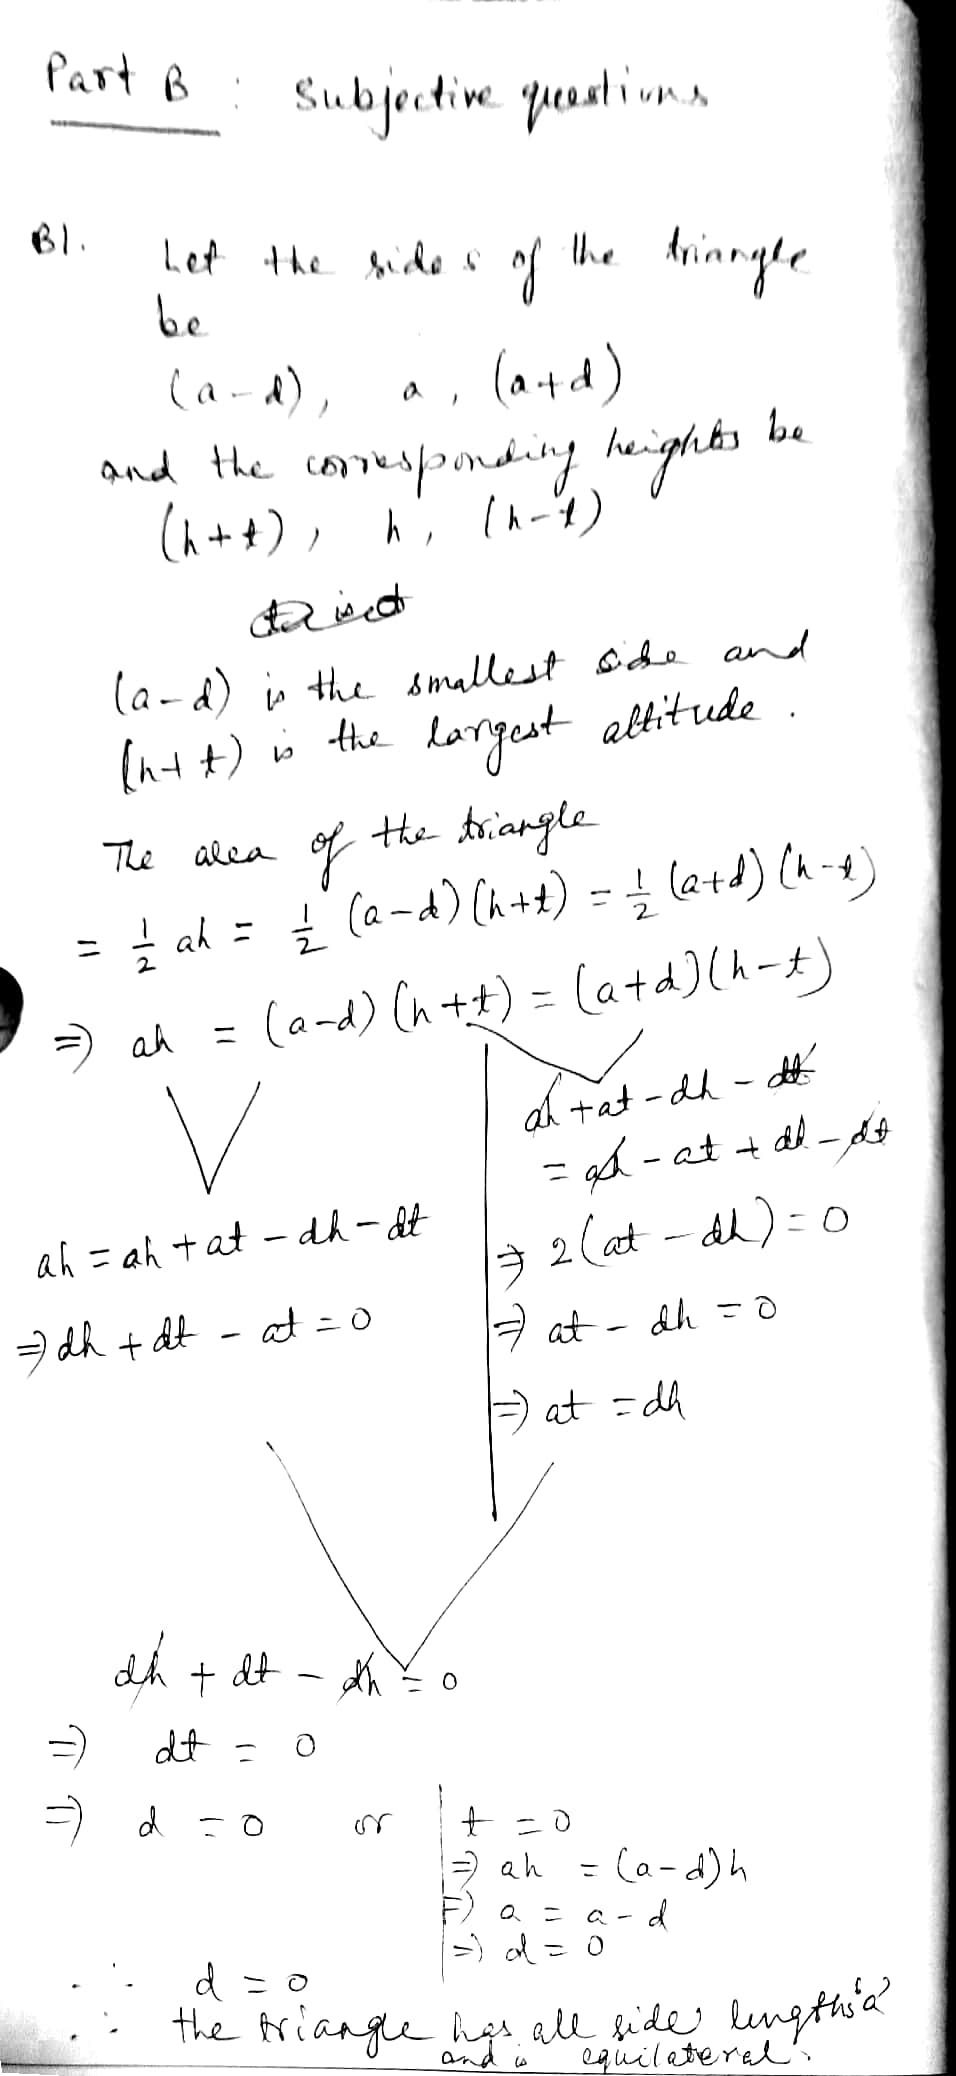 Part B : Subjective questions
B1. Let the sides of the triangle
be
(a-d), a, (a+d)
and the corresponding heights be
(h+t), h, (h-t)
(a-d) is the smallest side and
(h+t) is the largest altitude.
The area of the triangle
= 1/2 ah = 1/2 (a-d)(h+t) = 1/2 (a+d)(h-t)
⇒ ah = (a-d)(h+t) = (a+d)(h-t)
ah = ah + at - dh - dt
⇒ dh + dt - at = 0
ah + at - dh - dt
= ah - at + dh - dt
⇒ 2(at - dh) = 0
⇒ at - dh = 0
⇒ at = dh
dh + dt - dh = 0
⇒ dt = 0
⇒ d = 0 or t = 0
⇒ ah = (a-d)h
⇒ a = a-d
⇒ d = 0
∴ d = 0
∴ the triangle has all side lengths 'a'
and is equilateral.